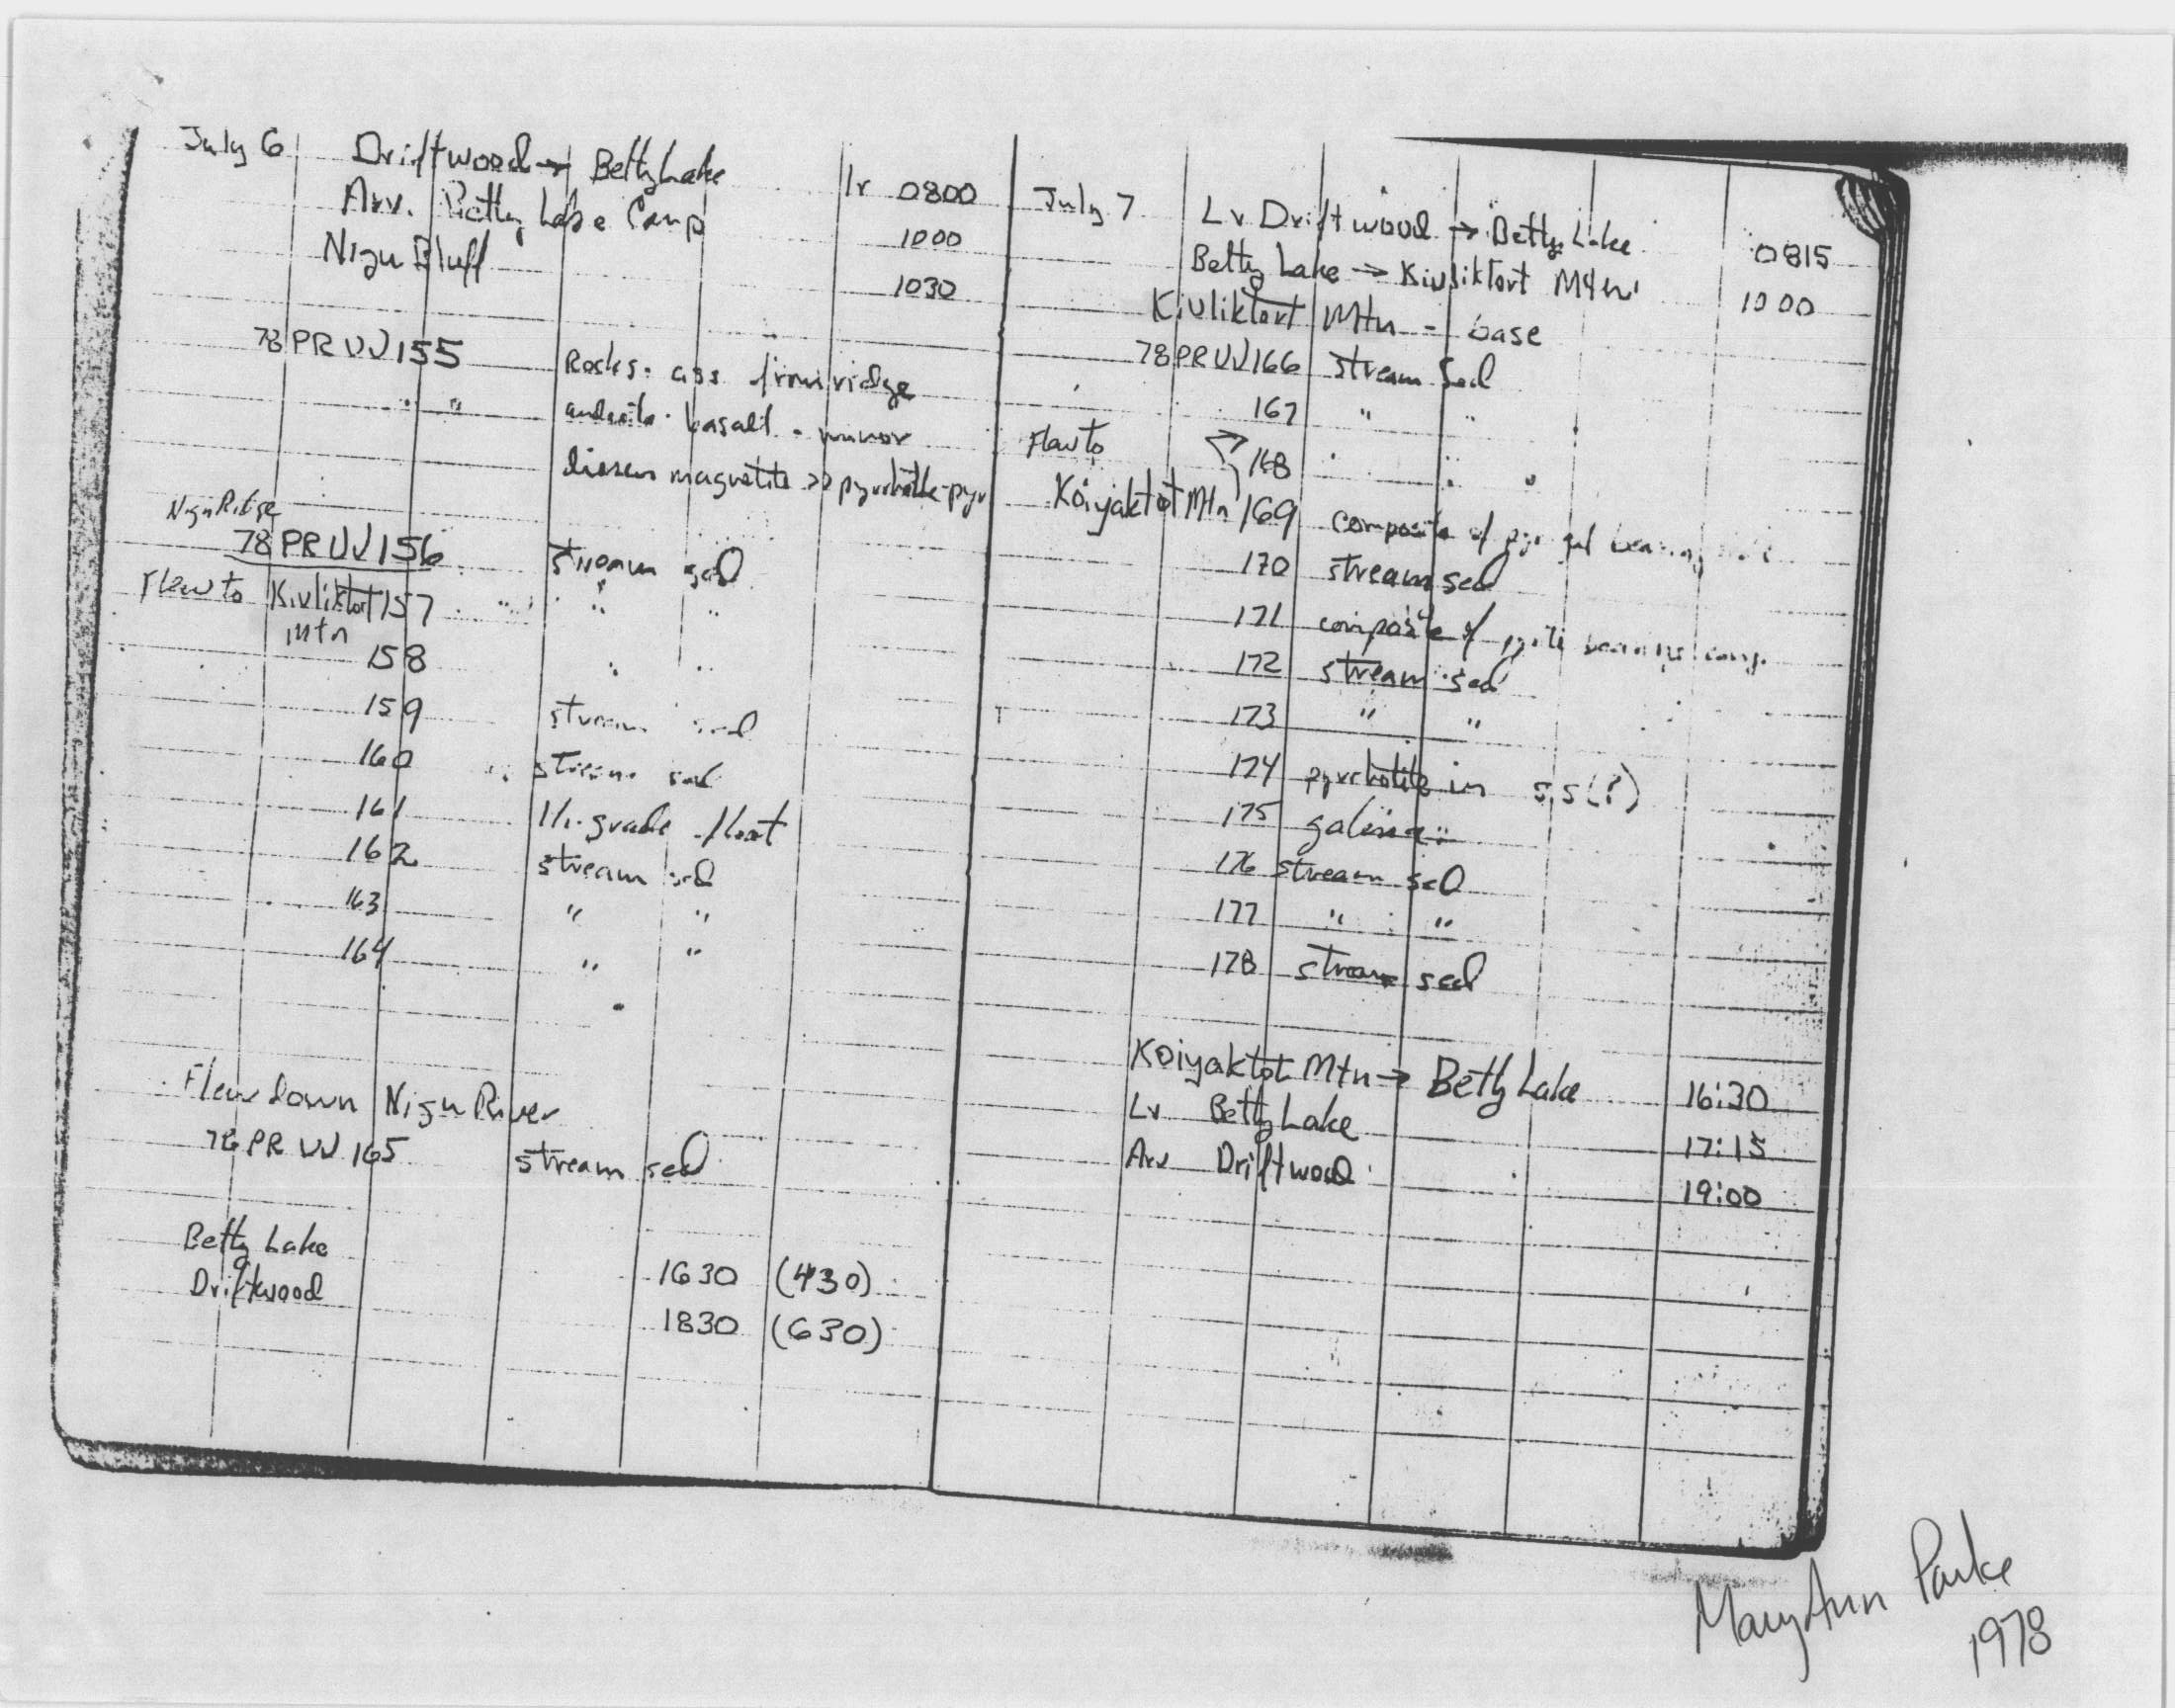 July 6 Driftwood → Betty Lake lv 0800
Arv. Betty Lake Camp 1000
Nigu Bluff 1030
78PRUV155 Rocks. from ridge
" " andesite basalt - minor
magnetite >> pyrrhotite-pyr
Nigu Ridge
78PRUV156 stream sed
Flew to Kivliktort 157 " "
Mtn
158 " "
159 stream sed
160 stream sed
161 grade float
162 stream sed
163 " "
164 " "
Flew down Nigu River
78PRUV165 stream sed
Betty Lake 1630 (430)
Driftwood 1830 (630)
July 7 Lv Driftwood → Betty Lake 0815
Betty Lake → Kivliktort Mtn 1000
Kivliktort Mtn - base
78PRUV166 stream sed
167 " "
Flew to 168 " "
Koiyaktot Mtn 169 composite of bearing
170 stream sed
171 composite of
172 stream sed
173 " "
174 pyrrhotite in s,s(?)
175 galena
176 stream sed
177 " "
178 stream sed
Koiyaktot Mtn → Betty Lake 16:30
Lv Betty Lake 17:15
Arv Driftwood 19:00
MaryAnn Parke
1978